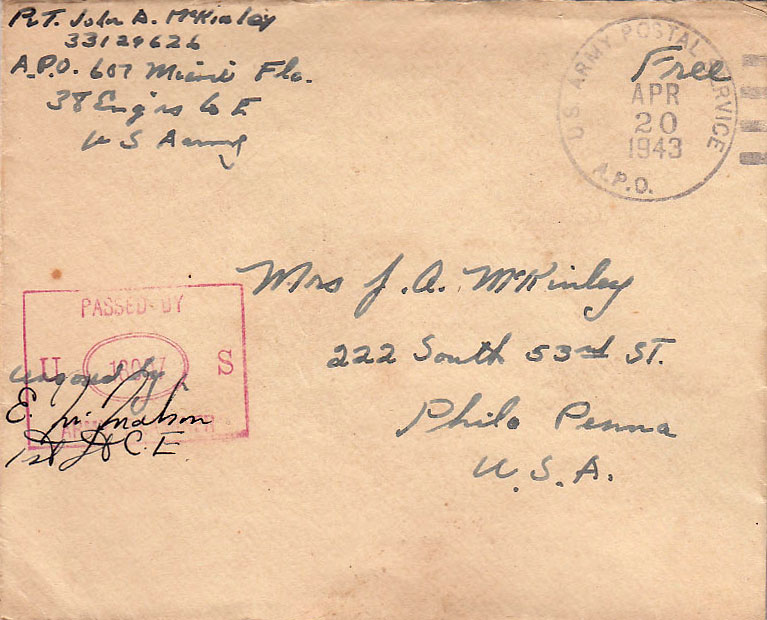 Pvt. John A. McKinley
33129626
A.P.O. 607 Miami Fla.
38 Eng'rs Co E
U S Army
Free
U.S. ARMY POSTAL SERVICE
APR
20
1943
A.P.O.
Mrs J. A. McKinley
222 South 53rd ST.
Phila Penna
U.S.A.
PASSED BY
U S
Censored by
E.
1st Lt C.E.